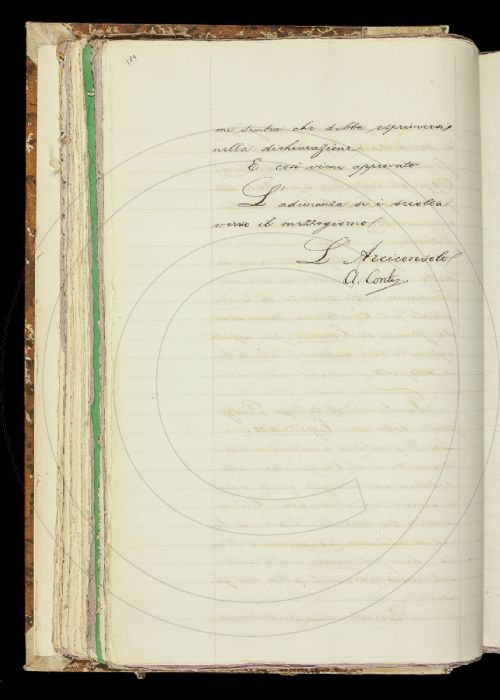 184
mi sembra che debba esprimersi
nella dichiarazione.
E così viene approvato
L'adunanza si è sciolta
verso il mezzogiorno.
L'Arciconsolo
A. Conti